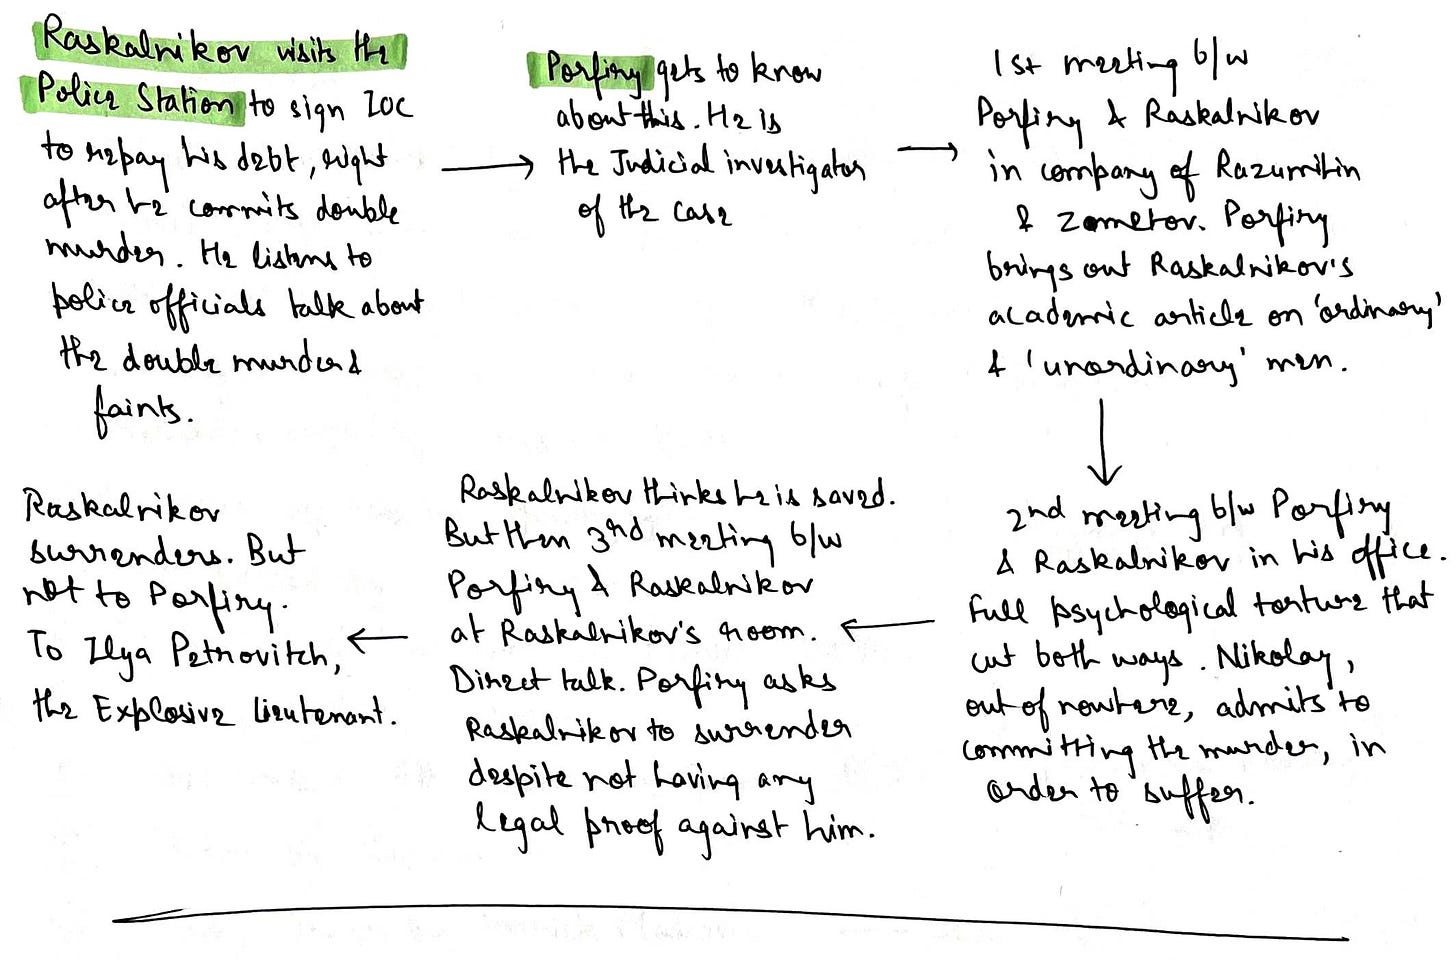 Raskalnikov visits the
Police Station to sign IOC
to repay his debt, right
after he commits double
murder. He listens to
police officials talk about
the double murder &
faints.
Porfiry gets to know
about this. He is
the Judicial investigator
of the case
1st meeting b/w
Porfiry & Raskalnikov
in company of Razumitin
& Zometov. Porfiry
brings out Raskalnikov's
academic article on 'ordinary'
& 'unordinary' men.
2nd meeting b/w Porfiry
& Raskalnikov in his office.
Full psychological torture that
cut both ways. Nikolay,
out of nowhere, admits to
committing the murder, in
order to suffer.
Raskalnikov thinks he is saved.
But then 3rd meeting b/w
Porfiry & Raskalnikov
at Raskalnikov's room.
Direct talk. Porfiry asks
Raskalnikov to surrender
despite not having any
legal proof against him.
Raskalnikov
surrenders. But
not to Porfiry.
To Ilya Petrovitch,
the Explosive Lieutenant.